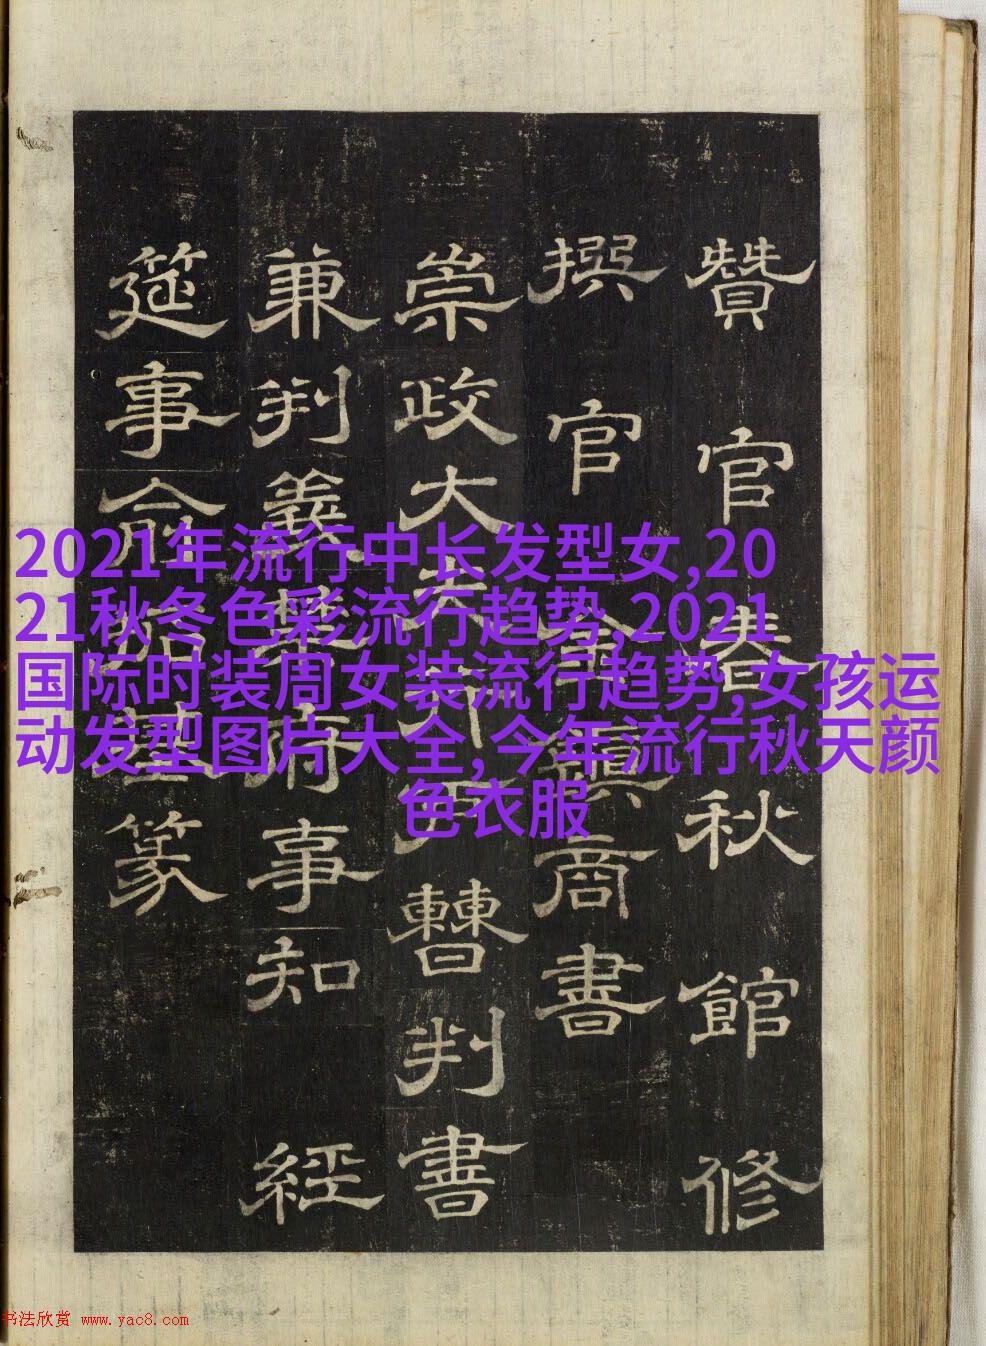 贊官春秋館修
撰官金鎮商書
崇政大夫行曹判書
兼判義禁府事知經
筵事俞篆
2021年流行中长发型女,20
21秋冬色彩流行趋势,2021
国际时装周女装流行趋势,女孩运
动发型图片大全, 今年流行秋天颜
色衣服
书法欣赏 www.yac8.com